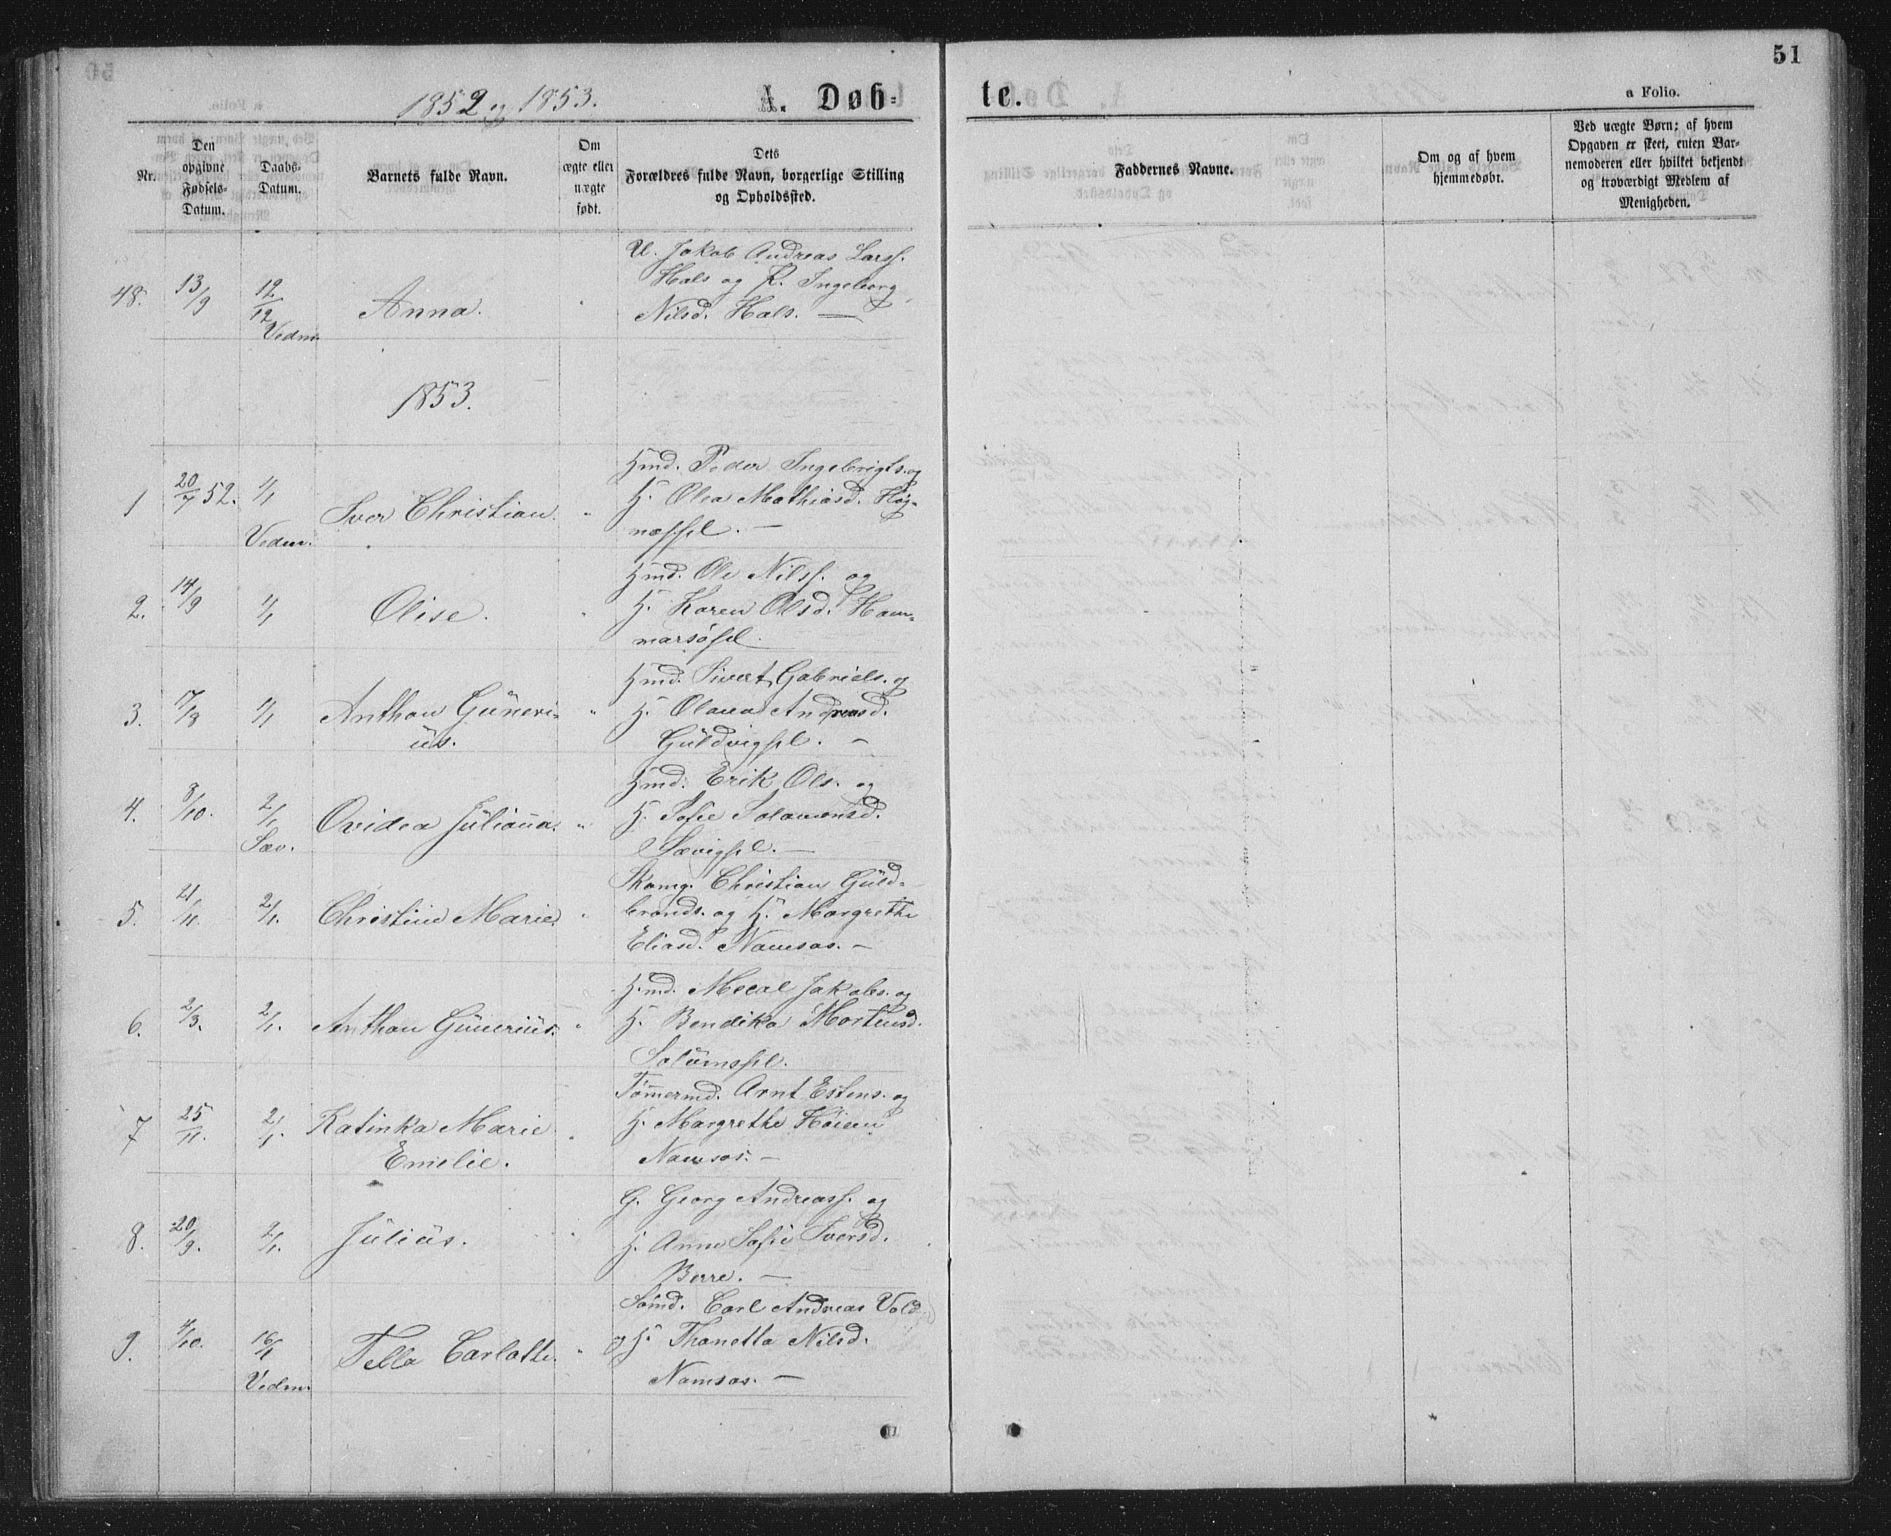 51
1852 og 1853. A. Døb= te. a Folio.
Nr.
Den opgivne Fødsels-Datum.
Daabs-Datum.
Barnets fulde Navn.
Om ægte eller uægte født.
Dets Forældres fulde Navn, borgerlige Stilling og Opholdssted.
Faddernes Navne.
Om og af hvem hjemmedøbt.
Ved uægte Børn; af hvem Opgaven er skeet, enten Barnemoderen eller hvilket bekjendt og troværdigt Medlem af Menigheden.
48. 13/9 12/12 Vedm. Anna. " U. Jakob Andreas Larss.
Hals og P. Ingeborg
Nilsd. Hals. —
1853.
1 20/7 52. 1/1 Vedm. Iver Christian. " Hmd. Peder Ingebrigts. og
H. Olea Mathiasd. Høg-
næssfl. —
2. 14/9 1/1 Olise. " Hmd. Ole Nilss. og
H. Karen Olsd. Ham=
marsøfl.
3. 17/9 1/1 Anthon Güneri=
üs. " Hmd. Sivert Gabriels. og
H. Olava Andreasd.
Güldvigfl. —
4. 8/10. 2/1 Sæv. Ovidea Juliana. " Hmd. Erik Ols. og
H. Sofie Salamonsd.
Sævigfl. —
5. 21/11. 2/1. Christine Marie. " Skomg. Christian Güld=
brands. og H. Margrethe
Eliasd. Namsos. —
6. 2/9. 2/1. Anthon Günerius. " Hmd. Mecal Jakobs. og
H. Bendika Mortensd.
Solümsfl.
7 25/11. 2/1. Katinka Marie
Emelie. " Tømermd. Arnt Estens. og
H. Margrethe Høiem
Namsos. —
8. 20/9. 2/1. Jülius. G. Georg Andreass. og
H. Anne Sofie Iversd.
Berre. —
9. 4/10. 16/1 Vedm. Tella Carlotte. " Sømd. Carl Andreas Vold
og H. Thanetta Nilsd.
Namsos. —